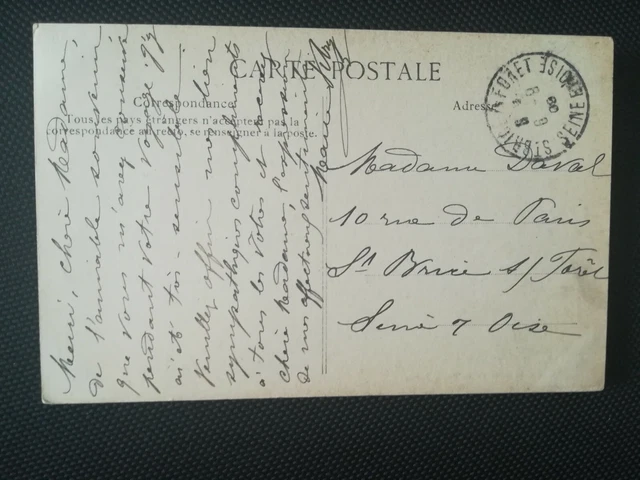 CARTE POSTALE
Correspondance
Tous les pays étrangers n'acceptent pas la
correspondance au recto, se renseigner à la poste.
Adresse
ST BRICE S FORET SEINE ET OISE
Madame Duval
10 rue de Paris
St Brice s/ Forêt
Seine & Oise
Merci, chère Madame,
de l'aimable souvenir
que vous m'avez envoyé
pendant votre voyage j'y
ai été très sensible.
Veuillez offrir mon bon
sympathiques compliments
à tous les vôtres et accepter
chère Madame, l'expression
de mes affectueux sentiments
Marie